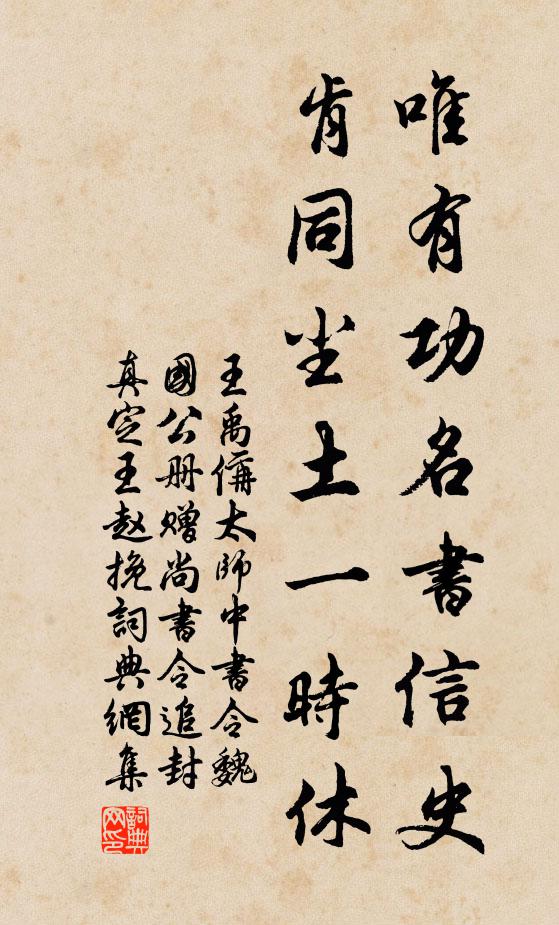 唯有功名書信史
肯同尘土一時休
王禹偁太師中書令魏
國公册赠尚書令追封
真定王赵挽詞典網集
詞典网印